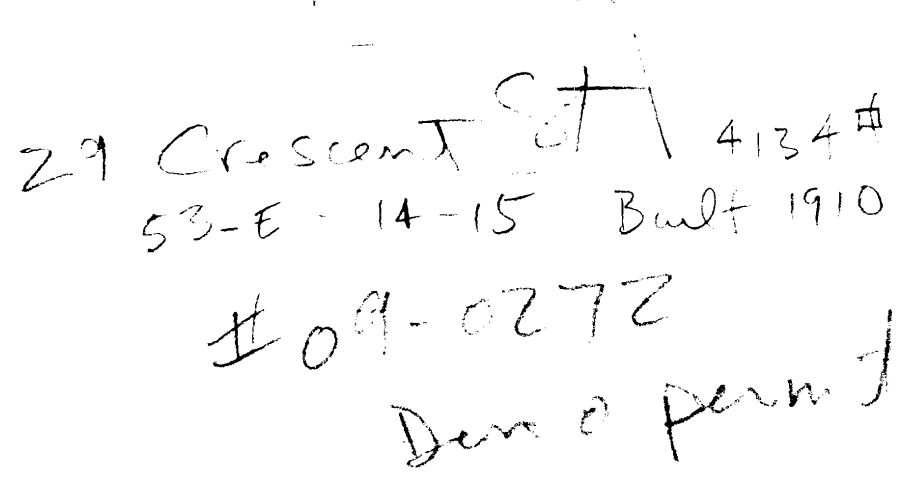 29 Crescent St 4134 #
53-E - 14-15 Built 1910
#09-0272
Demo permit